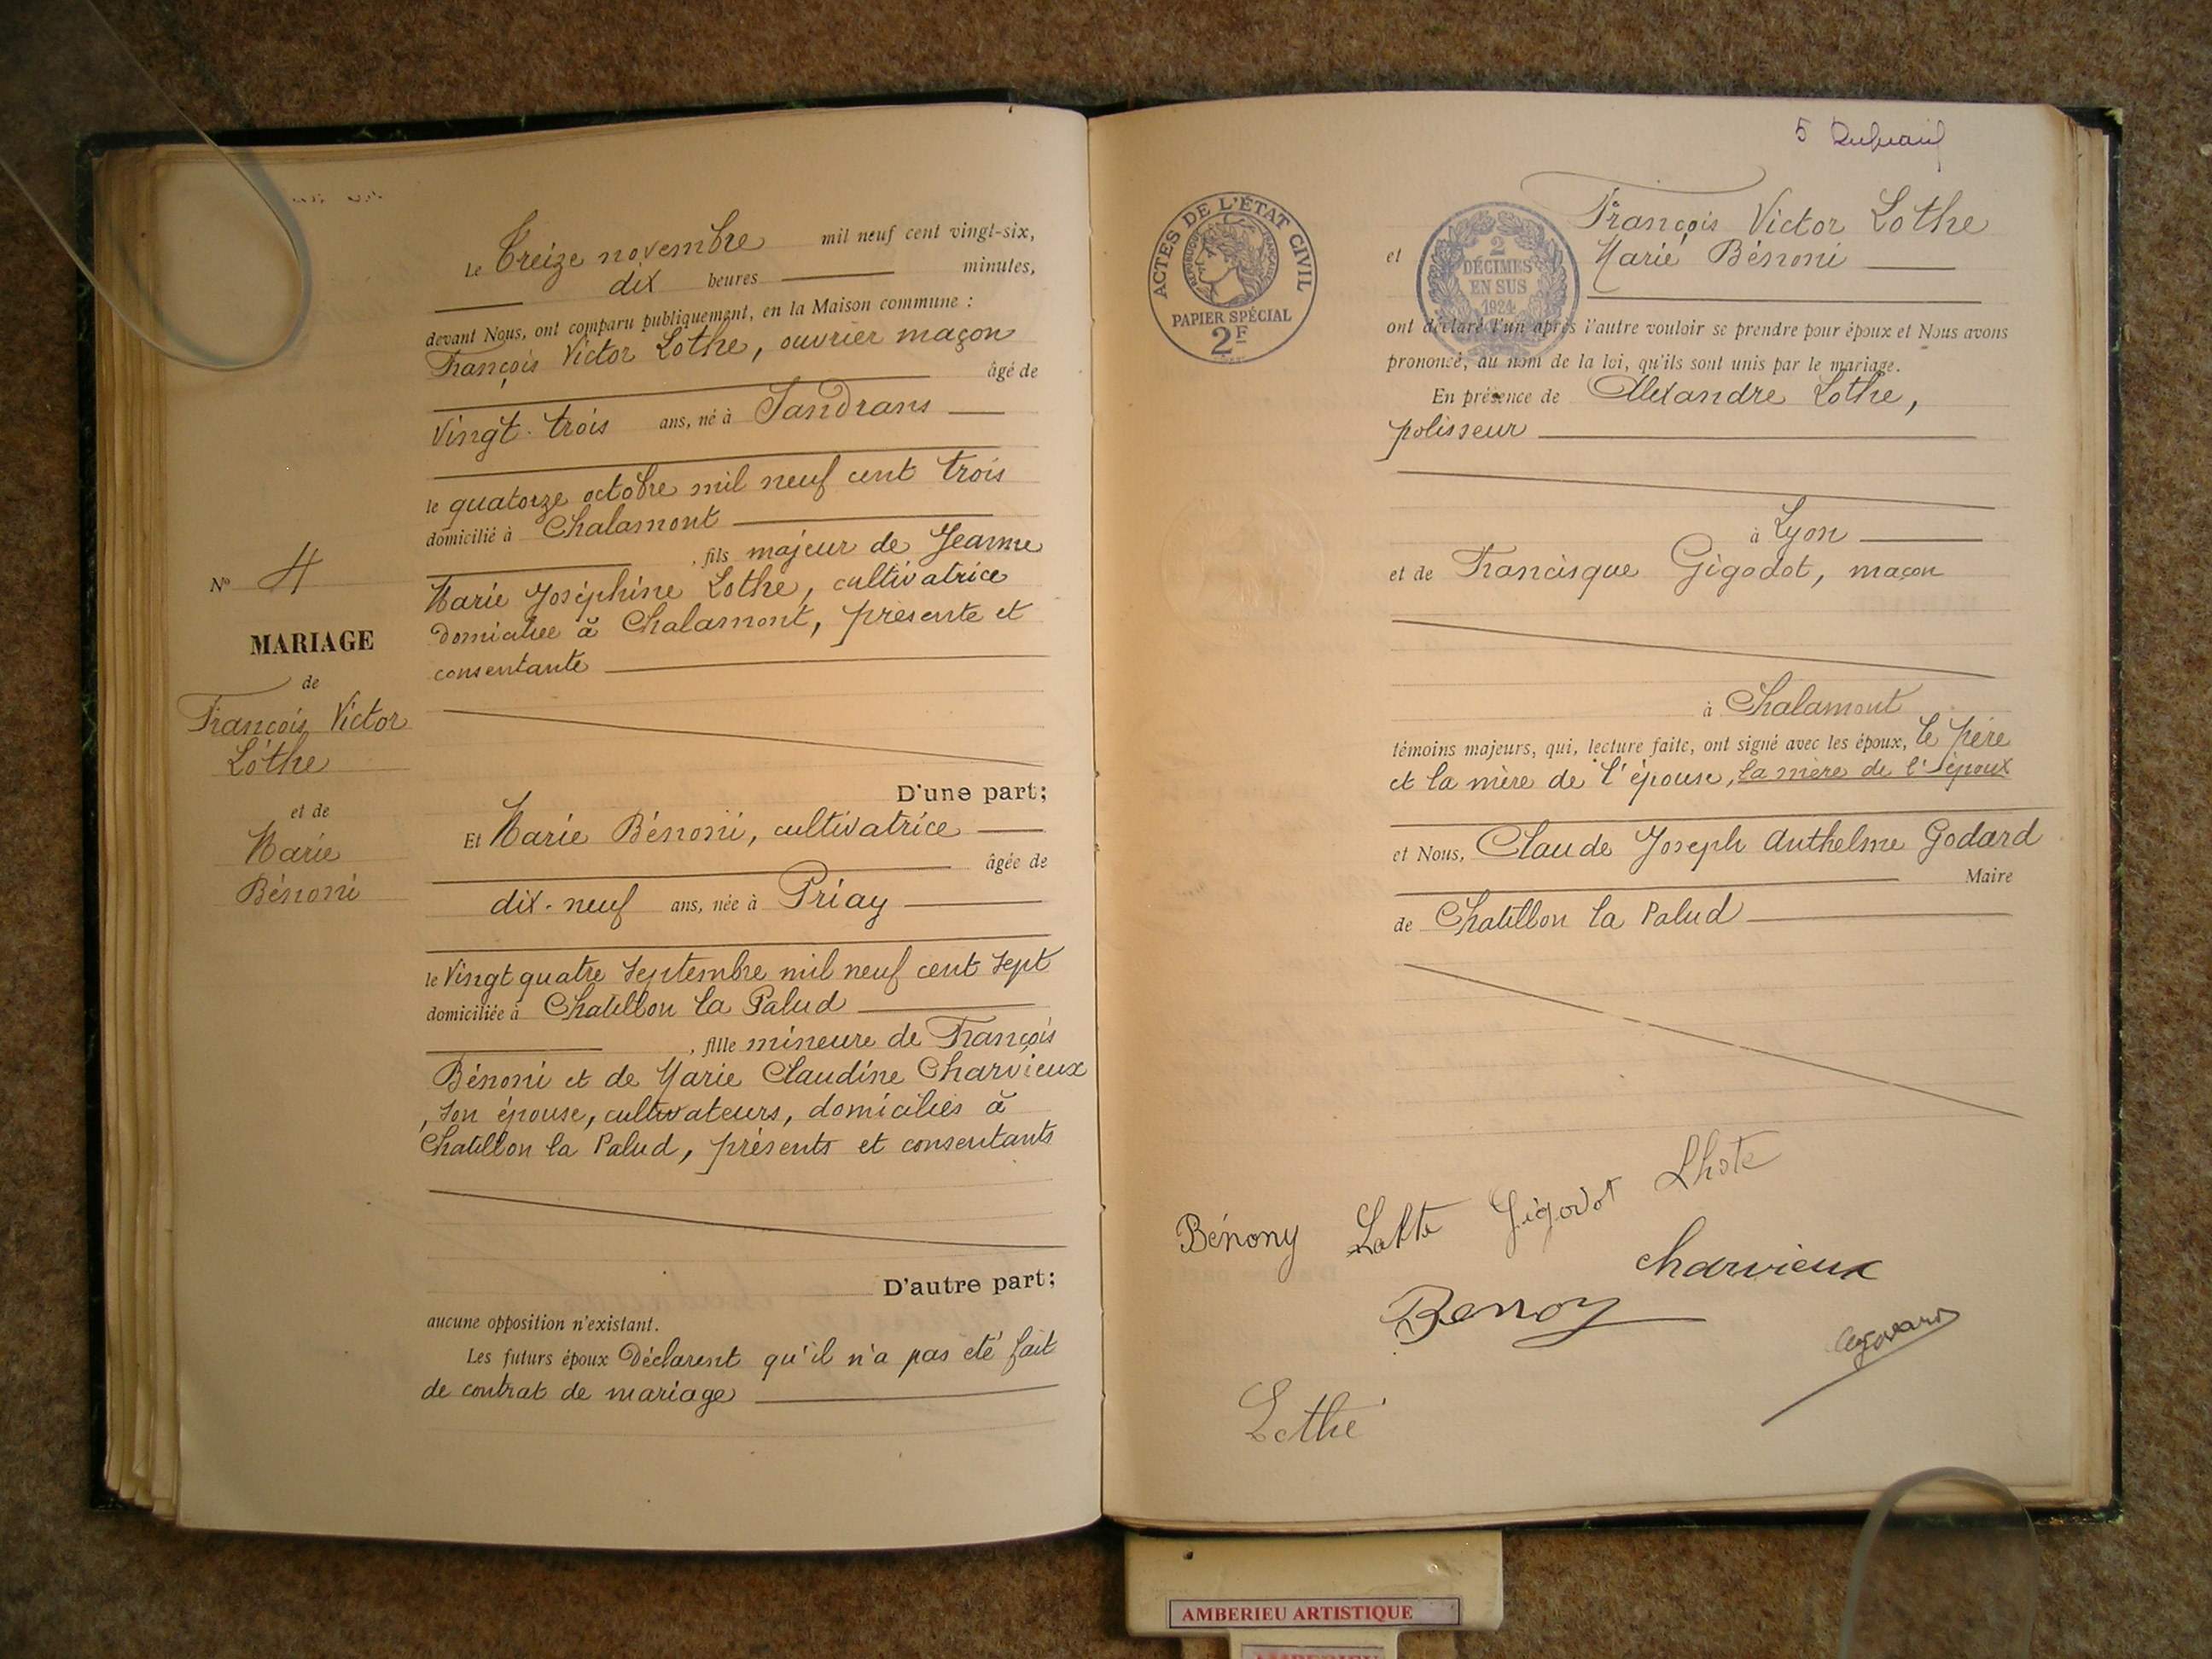 Le Treize novembre mil neuf cent vingt-six,
dix heures minutes,
devant Nous, ont comparu publiquement, en la Maison commune :
François Victor Lothe, ouvrier maçon
âgé de
vingt-trois ans, né à Sandrans
le quatorze octobre mil neuf cent trois
domicilié à Chalamont
, fils majeur de Jeanne
Marie Joséphine Lothe, cultivatrice
domiciliée à Chalamont, présente et
consentante
D'une part;
Et Marie Bénoni, cultivatrice
âgée de
dix-neuf ans, née à Priay
le Vingt quatre Septembre mil neuf cent sept
domiciliée à Chatillon la Palud
, fille mineure de François
Bénoni et de Marie Claudine Charvieux
, son épouse, cultivateurs, domiciliés à
Chatillon la Palud, présents et consentants
D'autre part;
aucune opposition n'existant.
Les futurs époux Déclarent qu'il n'a pas été fait
de contrat de mariage
N° 4
MARIAGE
de
François Victor
Lothe
et de
Marie
Bénoni
5
ACTES DE L'ÉTAT CIVIL
RÉPUBLIQUE FRANÇAISE
PAPIER SPÉCIAL
2F
2
DÉCIMES
EN SUS
1924
François Victor Lothe
et Marie Bénoni
ont déclaré l'un après l'autre vouloir se prendre pour époux et Nous avons
prononcé, au nom de la loi, qu'ils sont unis par le mariage.
En présence de Alexandre Lothe,
polisseur
à Lyon
et de Francisque Gigodot, maçon
à Chalamont
témoins majeurs, qui, lecture faite, ont signé avec les époux, le père
et la mère de l'épouse, la mère de l'époux
et Nous, Claude Joseph Anthelme Godard
Maire
de Chatillon la Palud
Bénony Lothe Gigodot Lhote
charvieux
Benoy
Lothe
AMBERIEU ARTISTIQUE
AMBERIEU